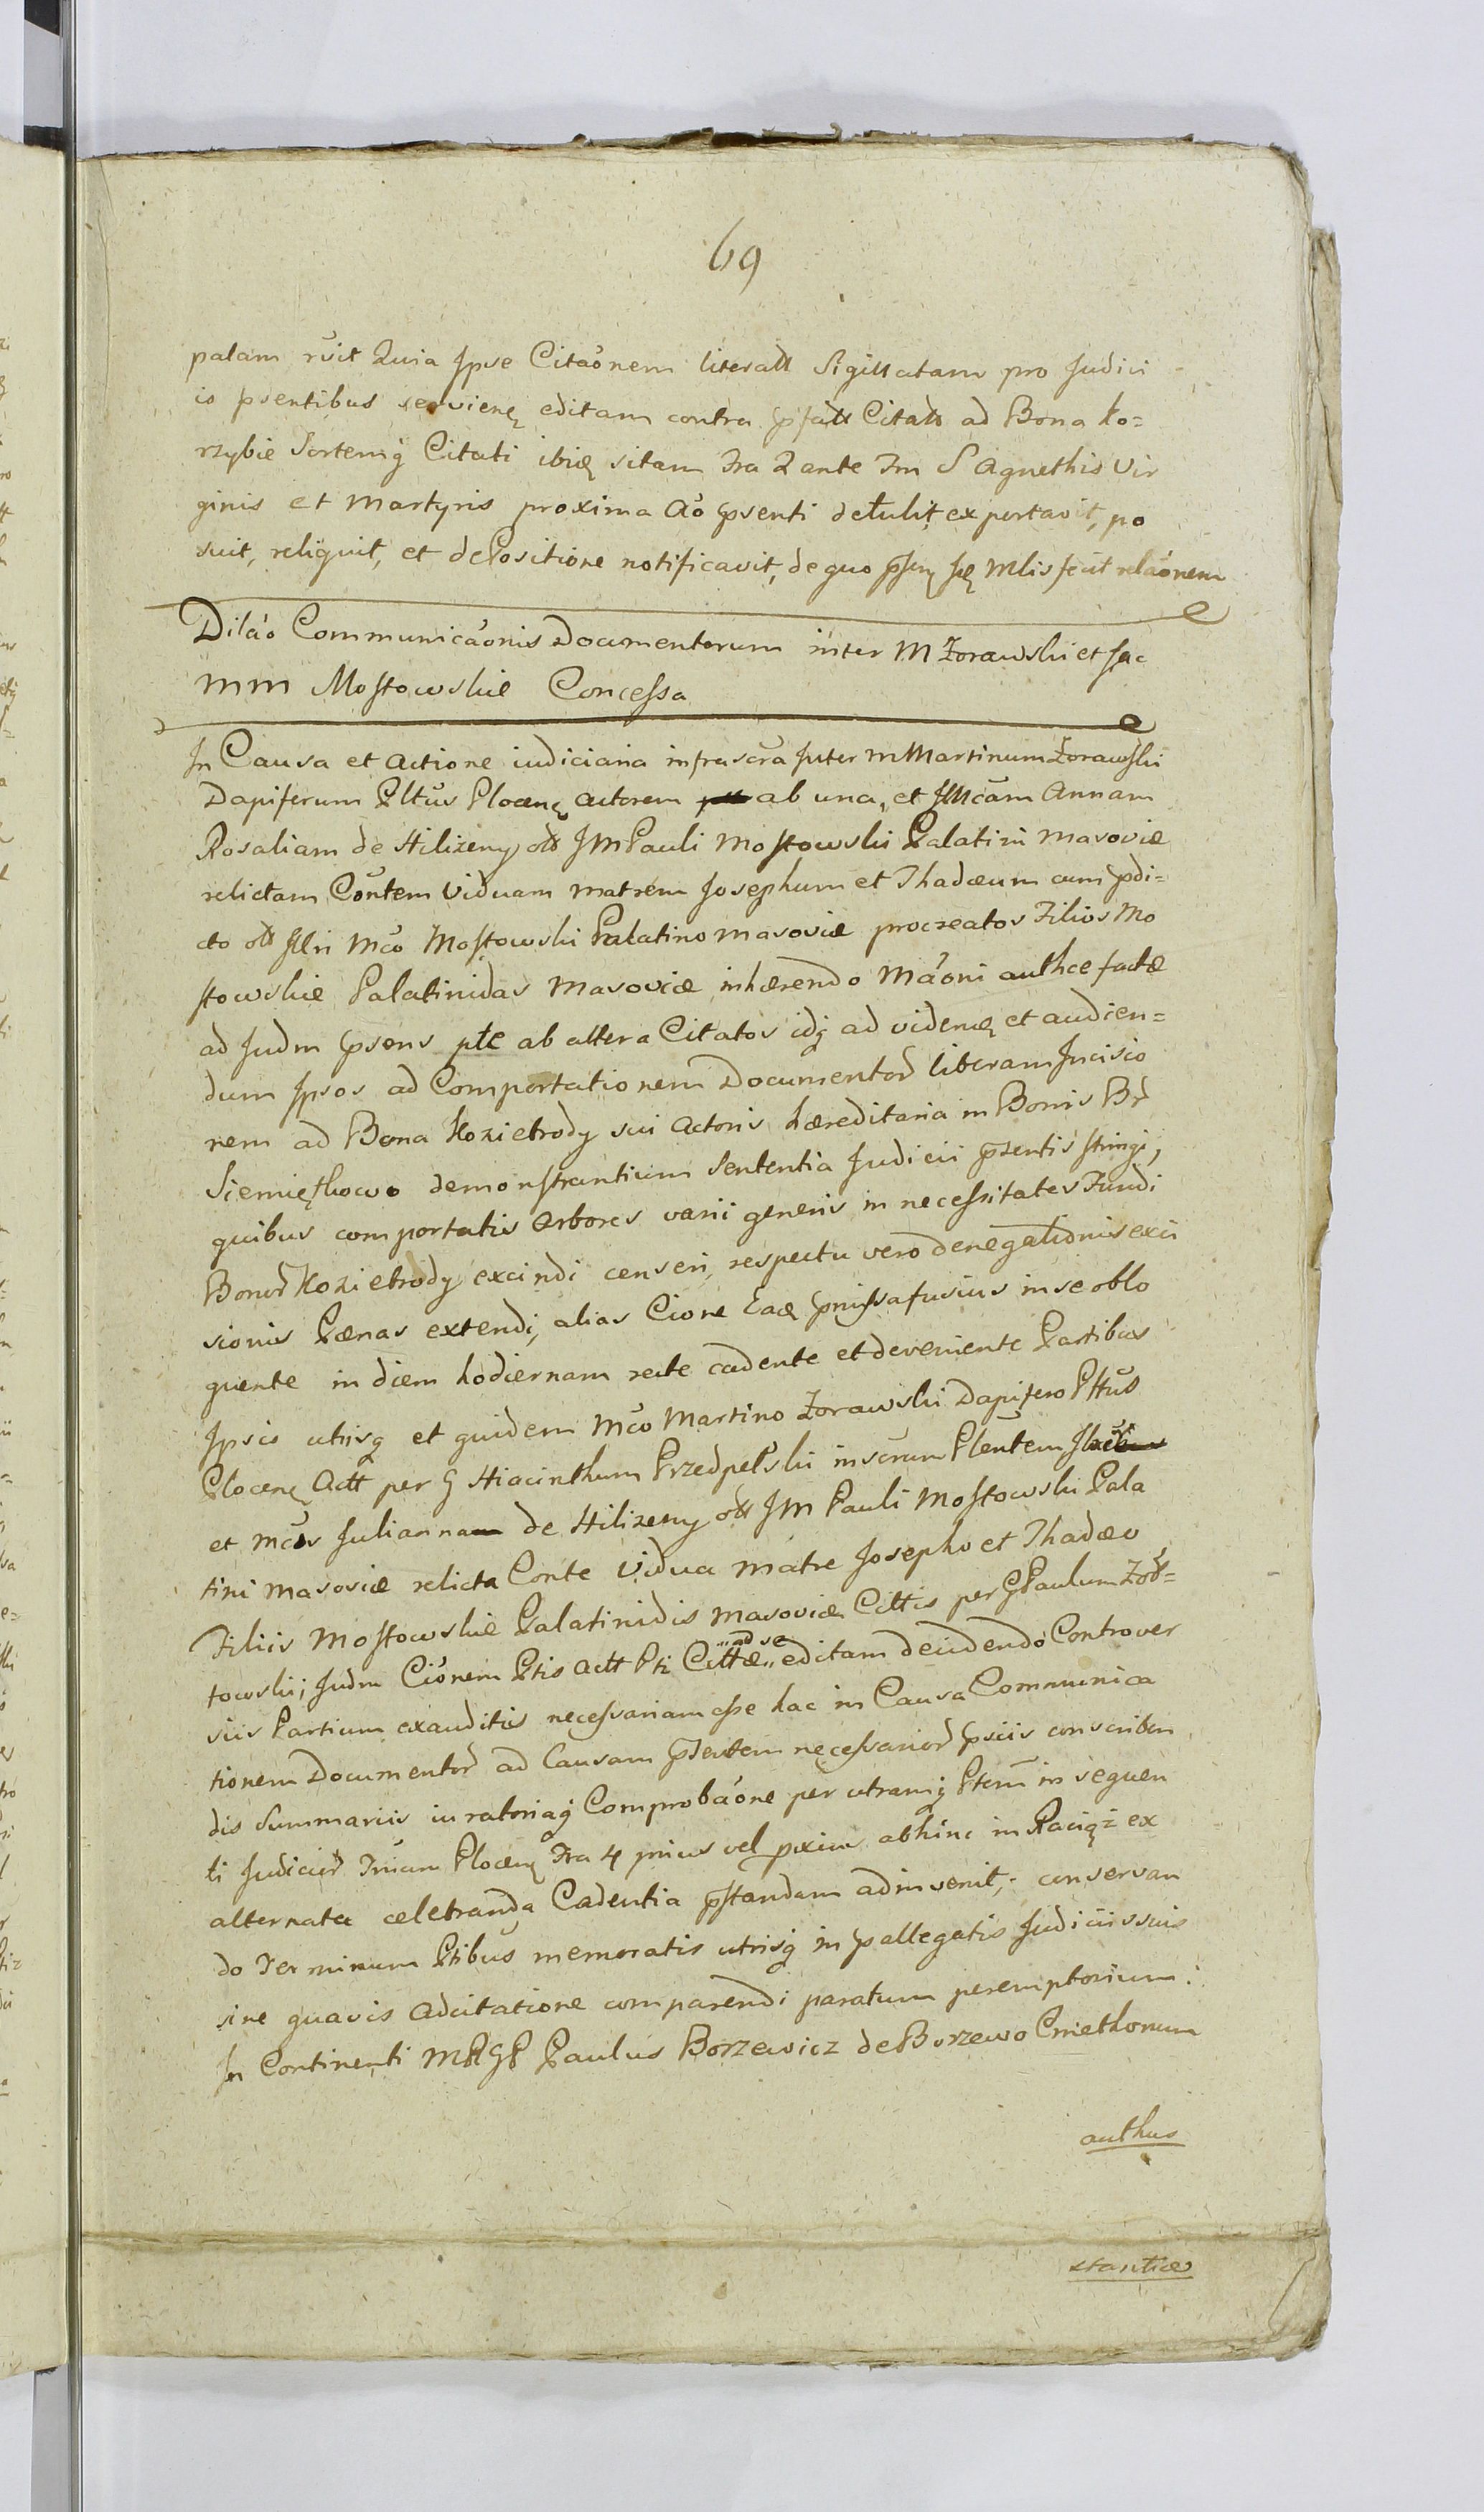 69
palam rũit Quia Ipse Citaõnem literall Sigillatam pro Judici
io psentibus servienę editam contra pfatt Citatt ad Bona ko=
rzybie Sortemq Citati ibię sitam Fra 2 ante Fm S Agnethis Vir
ginis et Martyris proxima Aõ psenti detulit exportavit, po
suit, reliquit, et de Positione notificavit, de quo psenę Mlis fecit relaõnem
Dilaõ Communicaõnis Documentorum inter M Zorawski et
MM Mostowskie Concessa
In Causa et Actione iudiciaria infrascra Inter M Martinum Zorawski
Dapiferum Pltũs Plocenę Actorem ab una, et IMcam Annam
Rosaliam de Hilizeny ott IM Pauli Mostowski Palatini Masoviæ
relictam Contem Viduam matrem Josephum et Thadæum cum pdi=
cto ott Mcõ Mostowski Palatino Masoviæ procreatos Filios Mo
stowskie Palatinidas Masoviæ inhærendo Maõni authce factæ
ad Judm psens pte ab altera Citatos idq ad videnę et audien=
dum Ipsos ad Comportationem Documentor liberam Incisio
nem ad Bona Kozietrody sui Actoris hæreditaria in Bonis
Siemiętkowo demonstrantium Sententia Judicii psentis stringi,
quibus comportatis Arbores varii generis in necessitates Fundi
Bonor Kozietrody excindi censeri, respectu vero denegationis exci
sionis Pænas extendi, alias Cione Eaq pmissa fusius in se oblo
quente in diem hodiernam recte cadente et deveniente Partibus
Ipsis utrisq et quidem Mcõ Martino Zorawski Dapifero Pltũs
Plocenę Actt per G Hiacinthum Przedpełski inscrum Plentem
et Mcis Julianna de Hilizeny ott IM Pauli Mostowski Pala
tini Masoviæ relicta Conte Vidua Matre Josepho et Thadæo
Filiis Mostowskie Palatinidis Masoviæ Cittis per G Paulum
towski; Judm Ciõnem Ptis Actt Pti Cittæ „ad se„ editam deiudendo Controver
siis Partium exauditis necessariam esse hac in Causa Communica
tionem Documentor ad Causam psentem necessarior psciis conscriben
dis Summariis iuratoriaq Comprobaõne per utramq Ptem in sequen
ti Judicior Plocenę Fra 4 prius vel pxim abhinc in Raciąż ex
alternata celebranda Cadentia pstandam adinvenit; conservan
do Terminum Ptibus memoratis utrisq in pallegatis Judiciis suis
sine quavis Adcitatione comparendi paratum peremptorium.
In Continenti MRGP Paulus Borzewicz de Borzewo Cmethonum
authus
stantiæ